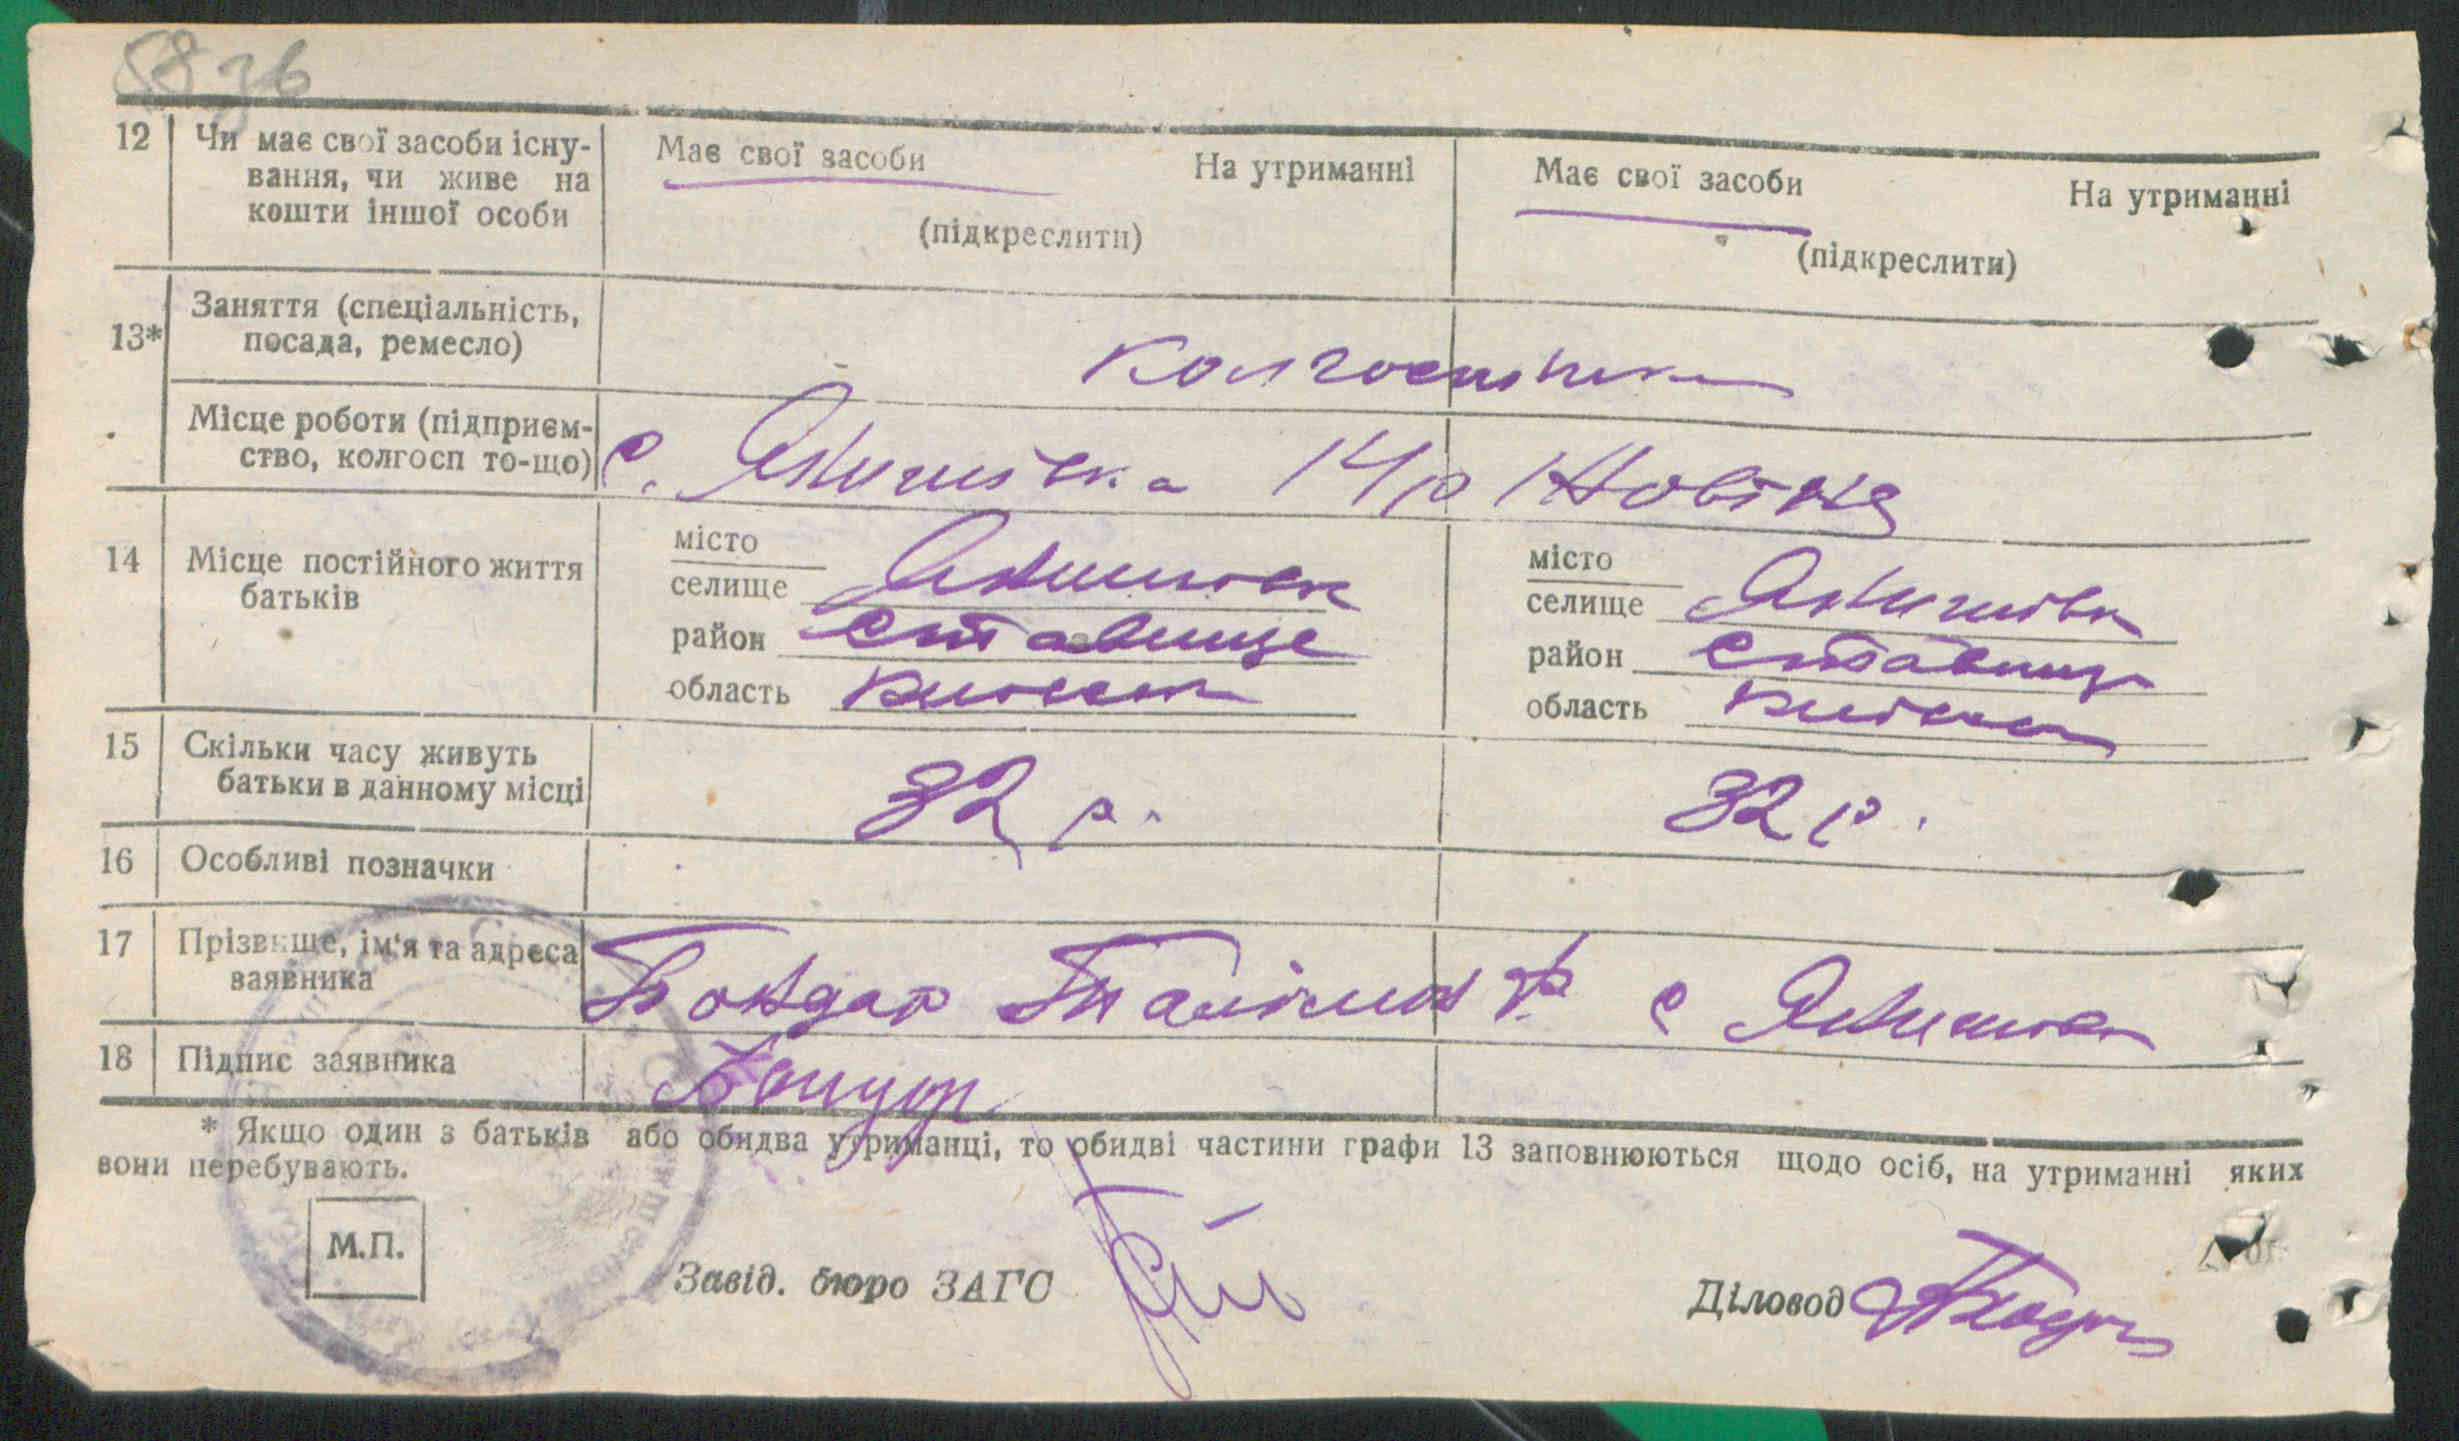 58 зв
12 Чи має свої засоби існу-
вання, чи живе на
кошти іншої особи
Має свої засоби На утриманні
(підкреслити)
Має свої засоби На утриманні
(підкреслити)
13* Заняття (спеціальність,
посада, ремесло)
колгоспники
Місце роботи (підприєм-
ство, колгосп то-що)
с. Янишівка 14 р Жовтня
14 Місце постійного життя
батьків
місто
селище Янишівк
район Ставище
область Київськ
місто
селище Янишівк
район Ставище
область Київськ
15 Скільки часу живуть
батьки в данному місці
32 р.
32 р.
16 Особливі позначки
17 Прізвище, ім'я та адреса
заявника
Бондар с Янишівк
18 Підпис заявника
Бондар
* Якщо один з батьків або обидва утриманці, то обидві частини графи 13 заповнюються щодо осіб, на утриманні яких
вони перебувають.
М.П.
Завід. бюро ЗАГС
Діловод